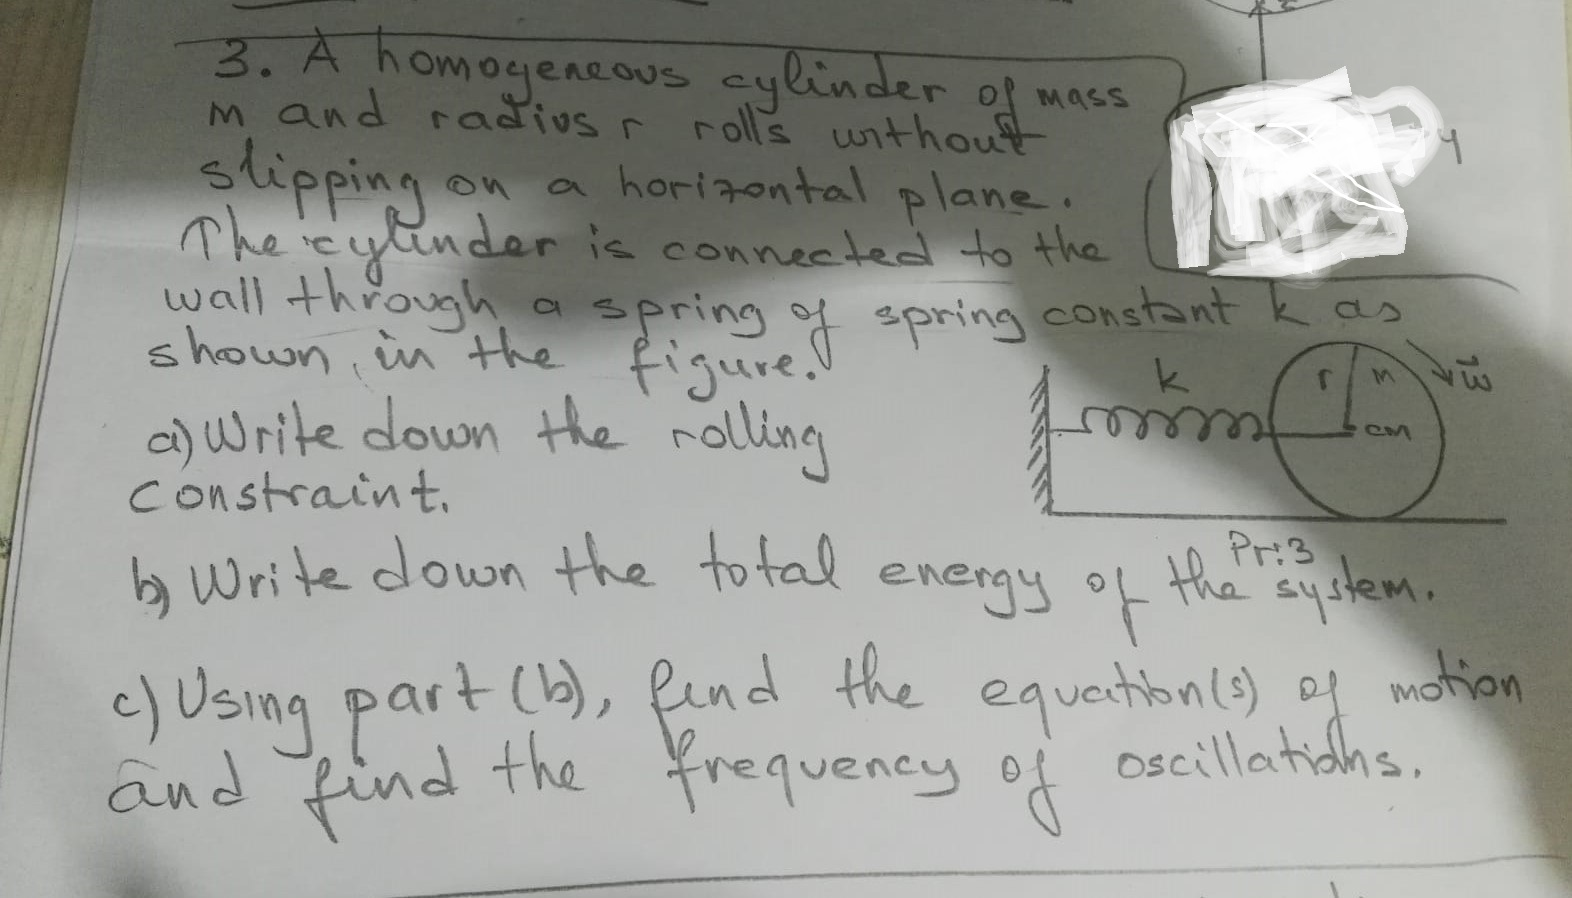 3. A homogeneous cylinder of mass
m and radius r rolls without
slipping on a horizontal plane.
The cylinder is connected to the
wall through a spring of spring constant k as
shown in the figure.
k
r m
w
cm
a) Write down the rolling
constraint.
Pr:3
b) Write down the total energy of the system.
c) Using part (b), find the equation(s) of motion
and find the frequency of oscillations.